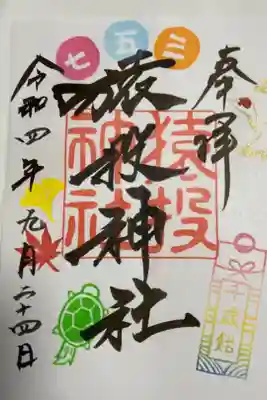 奉拝
三五七
猿投神社
猿投
神社
千歳飴
令和四年九月二十四日